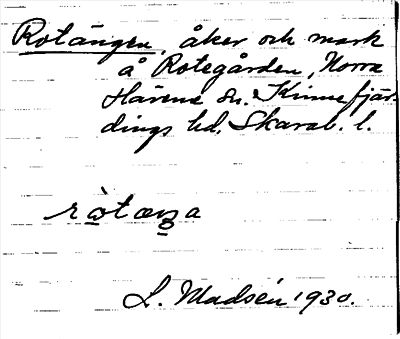 Rotängen, åker och mark
å Rotegården, Norra
Härene sn. Kinnefjär-
dings hd, Skarab. l.
L. Madsén 1930.